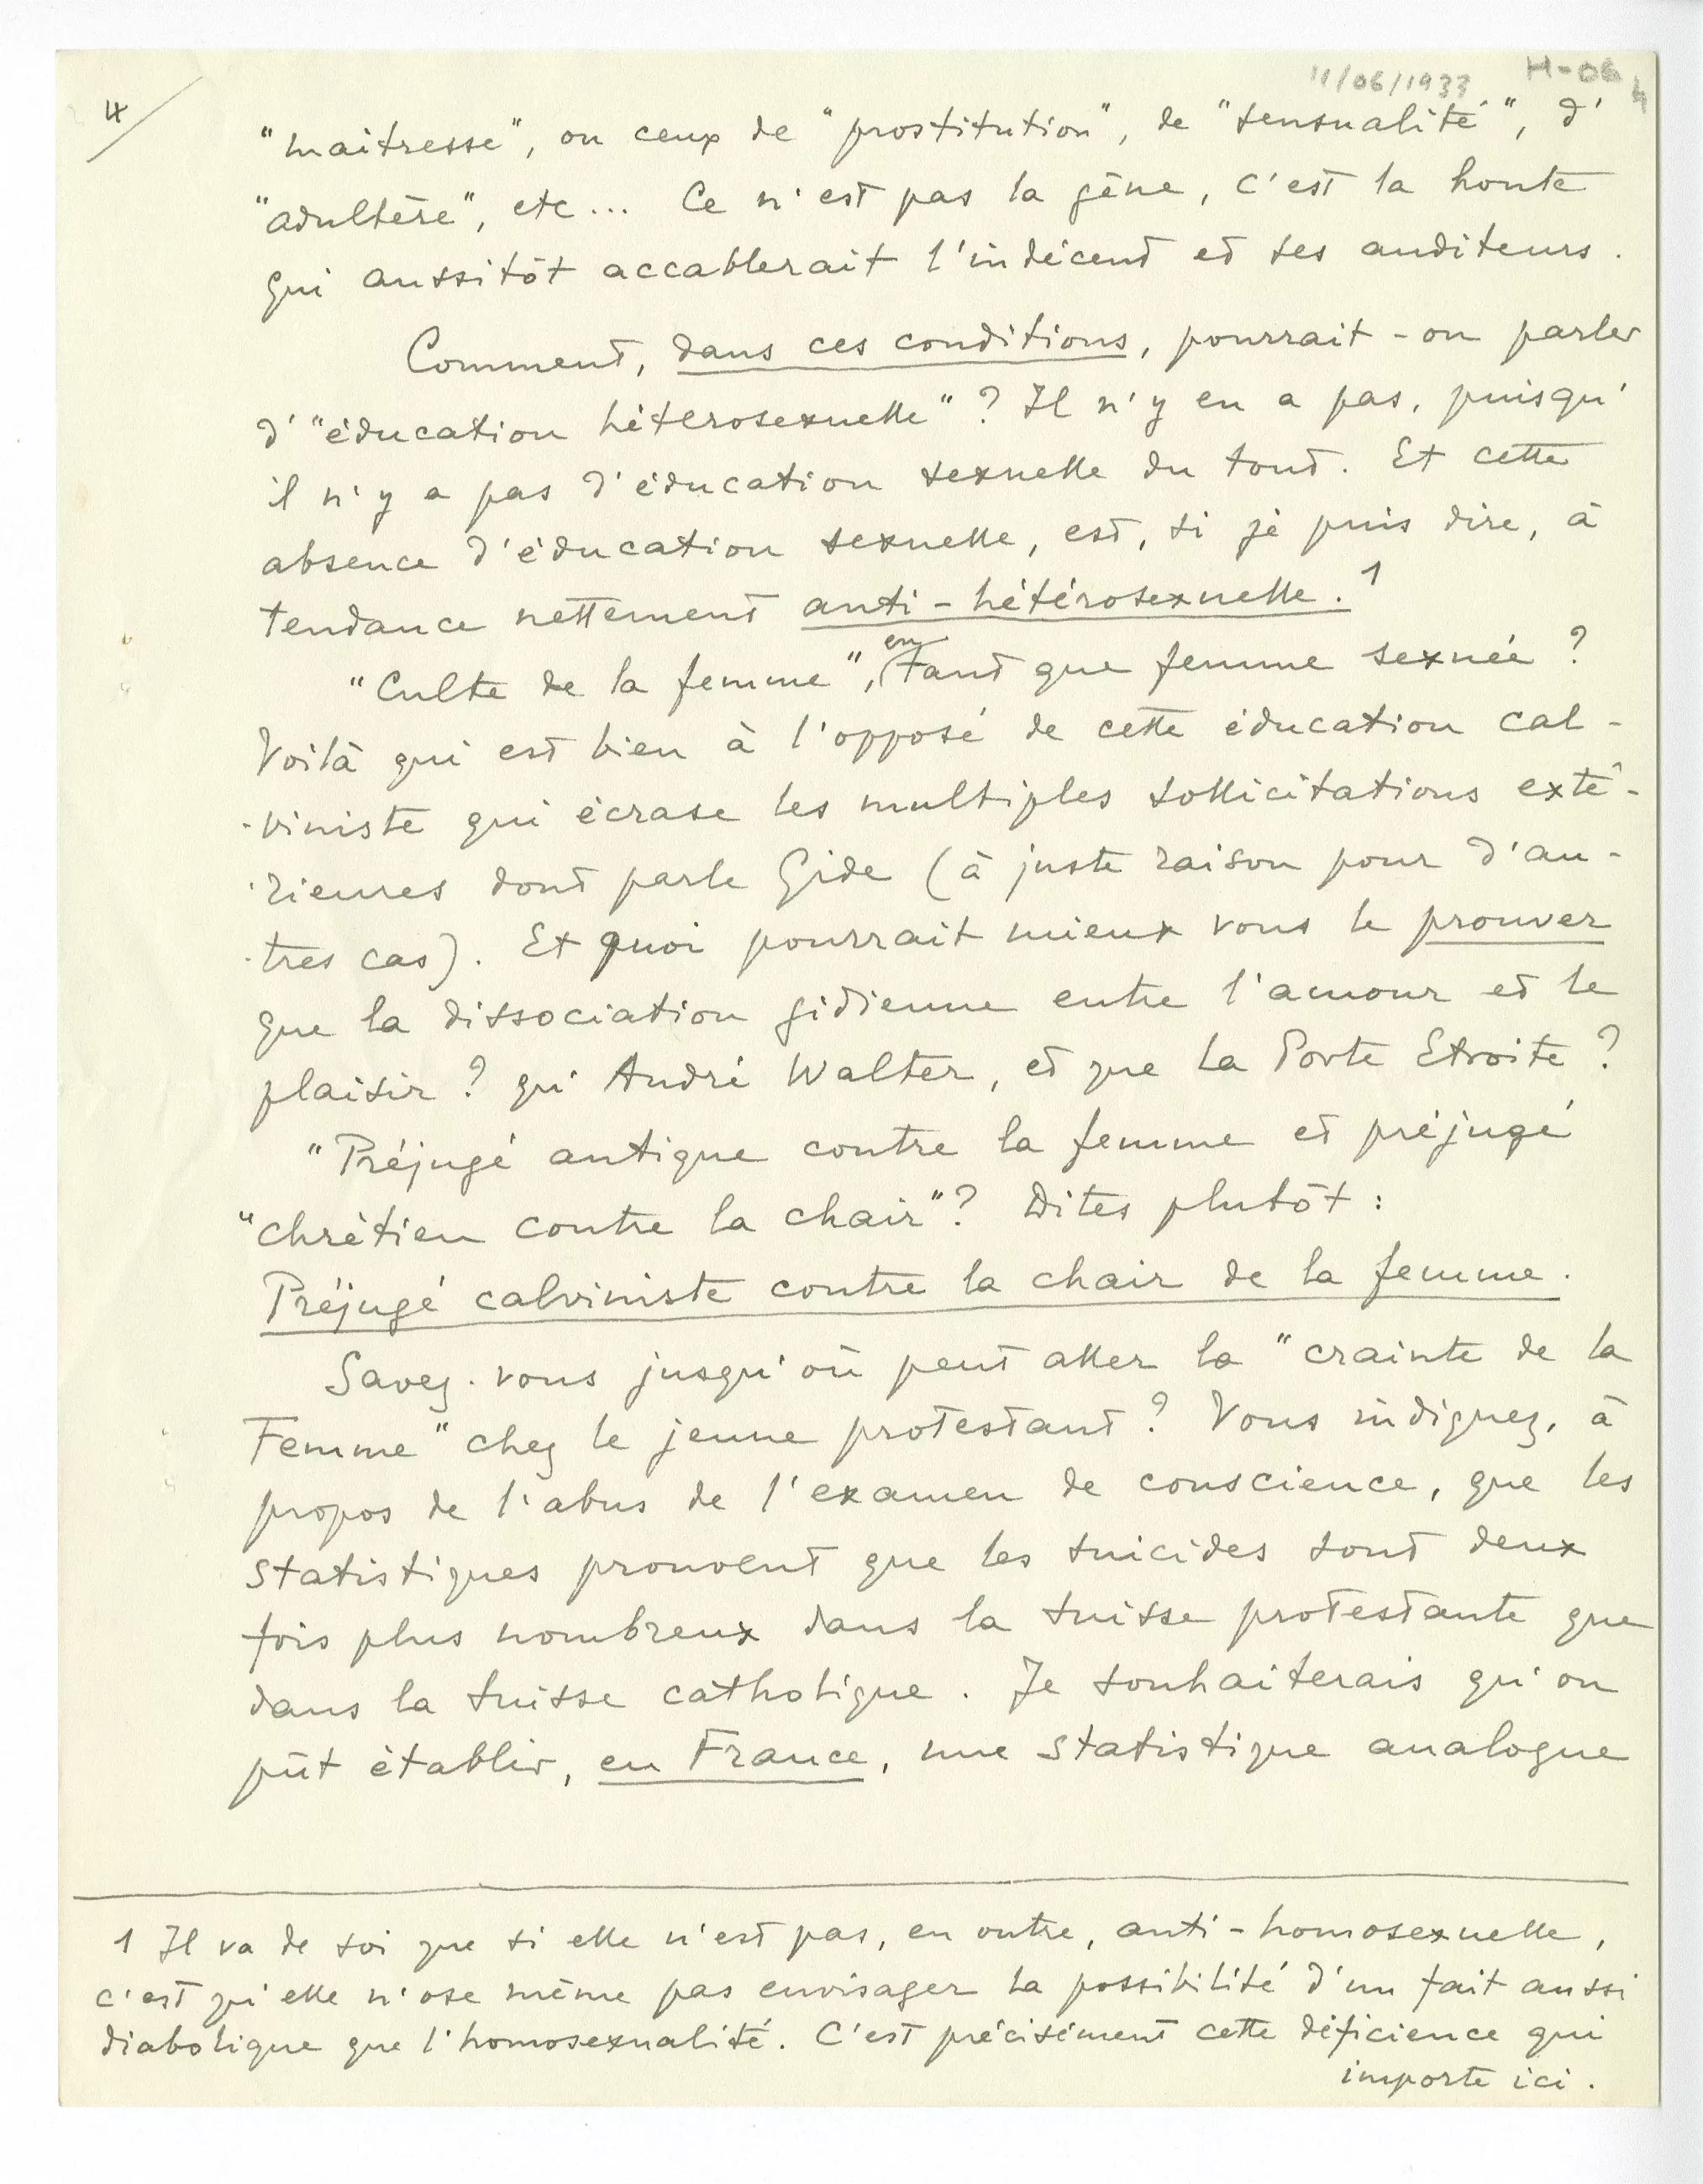 11/06/1933 H-06 4
4/
"maitresse", ou ceux de "prostitution", de "sensualité", d'
"adultère", etc... Ce n'est pas la gêne, c'est la honte
qui aussitôt accablerait l'indécent et ses auditeurs.
Comment, dans ces conditions, pourrait-on parler
d'"éducation hétérosexuelle"? Il n'y en a pas, puisqu'
il n'y a pas d'éducation sexuelle du tout. Et cette
absence d'éducation sexuelle, est, si je puis dire, à
tendance nettement anti-hétérosexuelle.1
"Culte de la femme", en tant que femme sexuée?
Voilà qui est bien à l'opposé de cette éducation cal-
-viniste qui écrase les multiples sollicitations exté-
-rieures dont parle Gide (à juste raison pour d'au-
-tres cas). Et quoi pourrait mieux vous le prouver
que la dissociation gidienne entre l'amour et le
plaisir? qu'André Walter, et que La Porte Etroite?
"Préjugé antique contre la femme et préjugé
"chrétien contre la chair"? Dites plutôt:
Préjugé calviniste contre la chair de la femme.
Savez-vous jusqu'où peut aller la "crainte de la
Femme" chez le jeune protestant? Vous indiquez, à
propos de l'abus de l'examen de conscience, que les
statistiques prouvent que les suicides sont deux
fois plus nombreux dans la Suisse protestante que
dans la Suisse catholique. Je souhaiterais qu'on
pût établir, en France, une statistique analogue
1 Il va de soi que si elle n'est pas, en outre, anti-homosexuelle,
c'est qu'elle n'ose même pas envisager la possibilité d'un fait aussi
diabolique que l'homosexualité. C'est précisément cette déficience qui
importe ici.